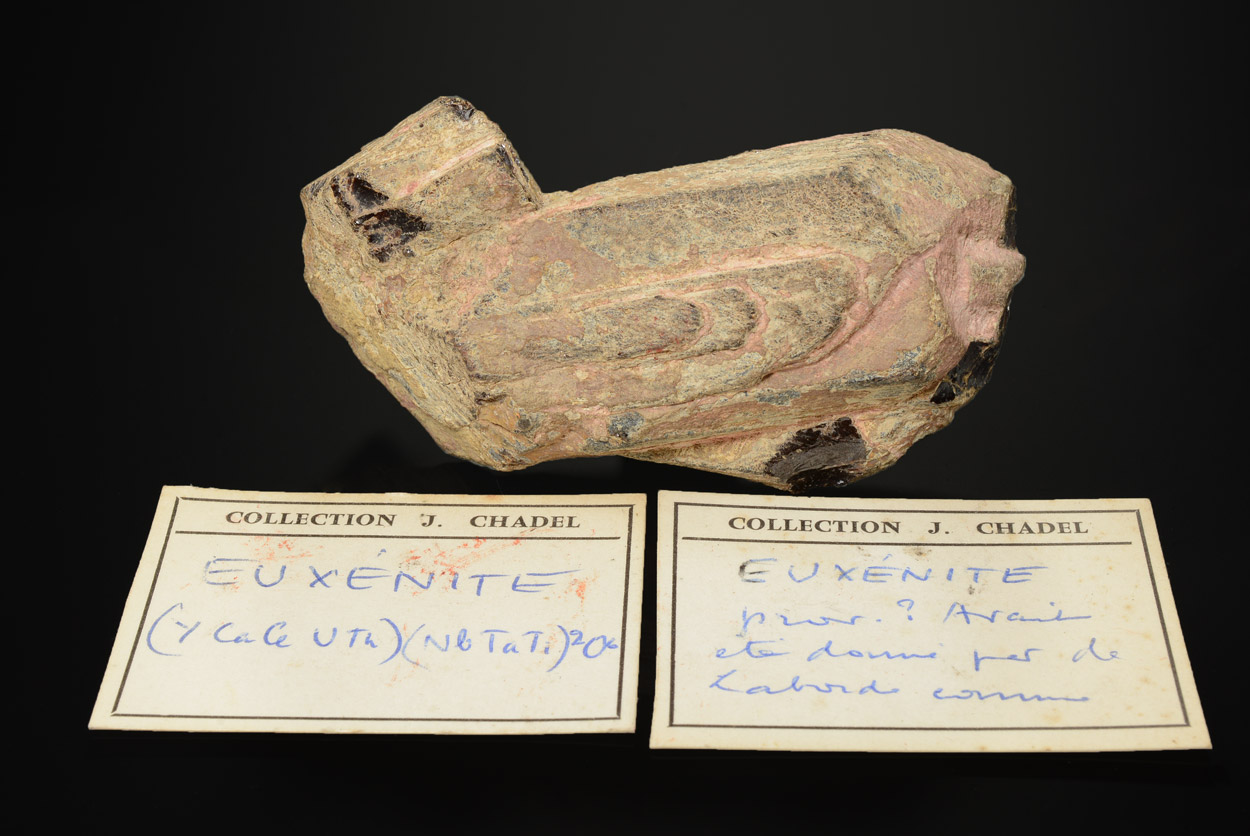 COLLECTION J. CHADEL
EUXÉNITE
(Y Ca Ce U Th)(Nb Ta Ti)²O⁶
COLLECTION J. CHADEL
EUXÉNITE
prov. ? Avait
ete donné par de
Laborde comme